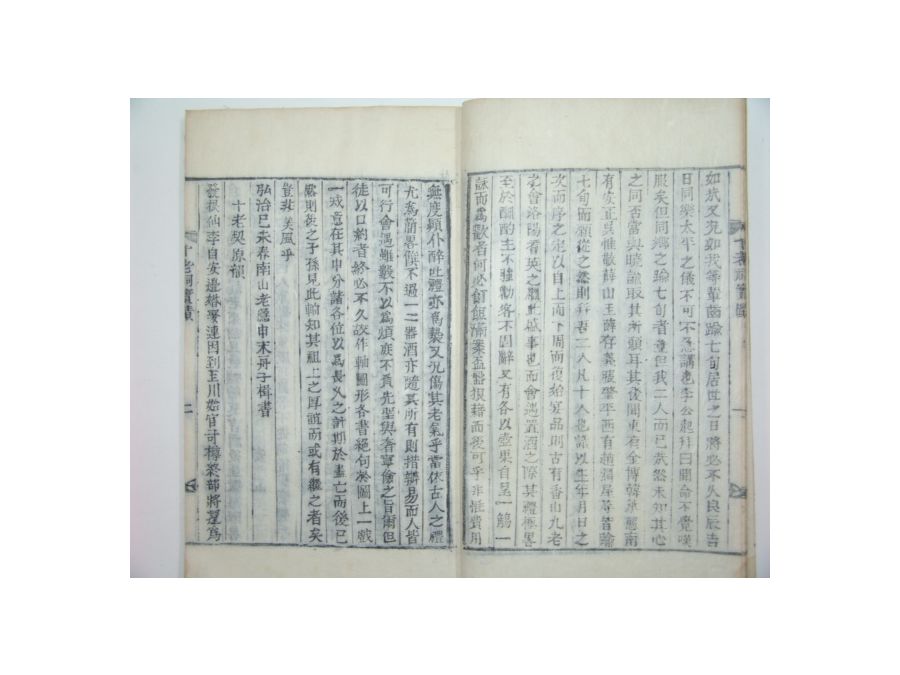 如此又況如我等輩齒踰七旬居世之日將必不久良辰吉
日同樂太平之儀不可不急講也李公起拜曰聞命不覺嘆
服矣但同鄉之踰七旬者童但我二人而已哉然未知其心
之同否當與曉誼取其所願耳其後聞東有金博韓承愈南
有安正吳惟敬薛山玉薛存義張肇平西有趙潤屏等皆踰
七旬而願從之然則并吾二人凡十人也試以生年月日之
次而序之定以自上而下周而復始宴品則古有香山九老
之會洛陽耆英之禮此盛事也而會遇置酒之際其禮極畧
至於酬酌主不雖勸客不固辭又有各以壺果自呈一觴一
詠而爲歡者何必飣餖滿案盃盤狼藉而後可乎非惟費用
無度顚仆醉吐禮亦爲褻又況傷其老氣乎當依古人之禮
尤爲簡畧饌不過一二器酒亦隨其所有則措辦易而人皆
可行會遇雖數不以爲煩庶不負先聖與奢寧儉之旨爾但
徒以口約者終必不久故作軸圖形各書絕句於圖上一戲
一戒意在其中分諸各位以爲長久之計期於盡亡而後已
焉則後之子孫見此軸知其祖上之厚誼而或有繼之者矣
豈非美風乎
弘治己未春南山老隱申末舟子楫書
十老契原韻
發根仙李自安邊塔峯連因到玉川始官司樽終部將翬爲
十老祠實蹟
二
十老祠實蹟
一